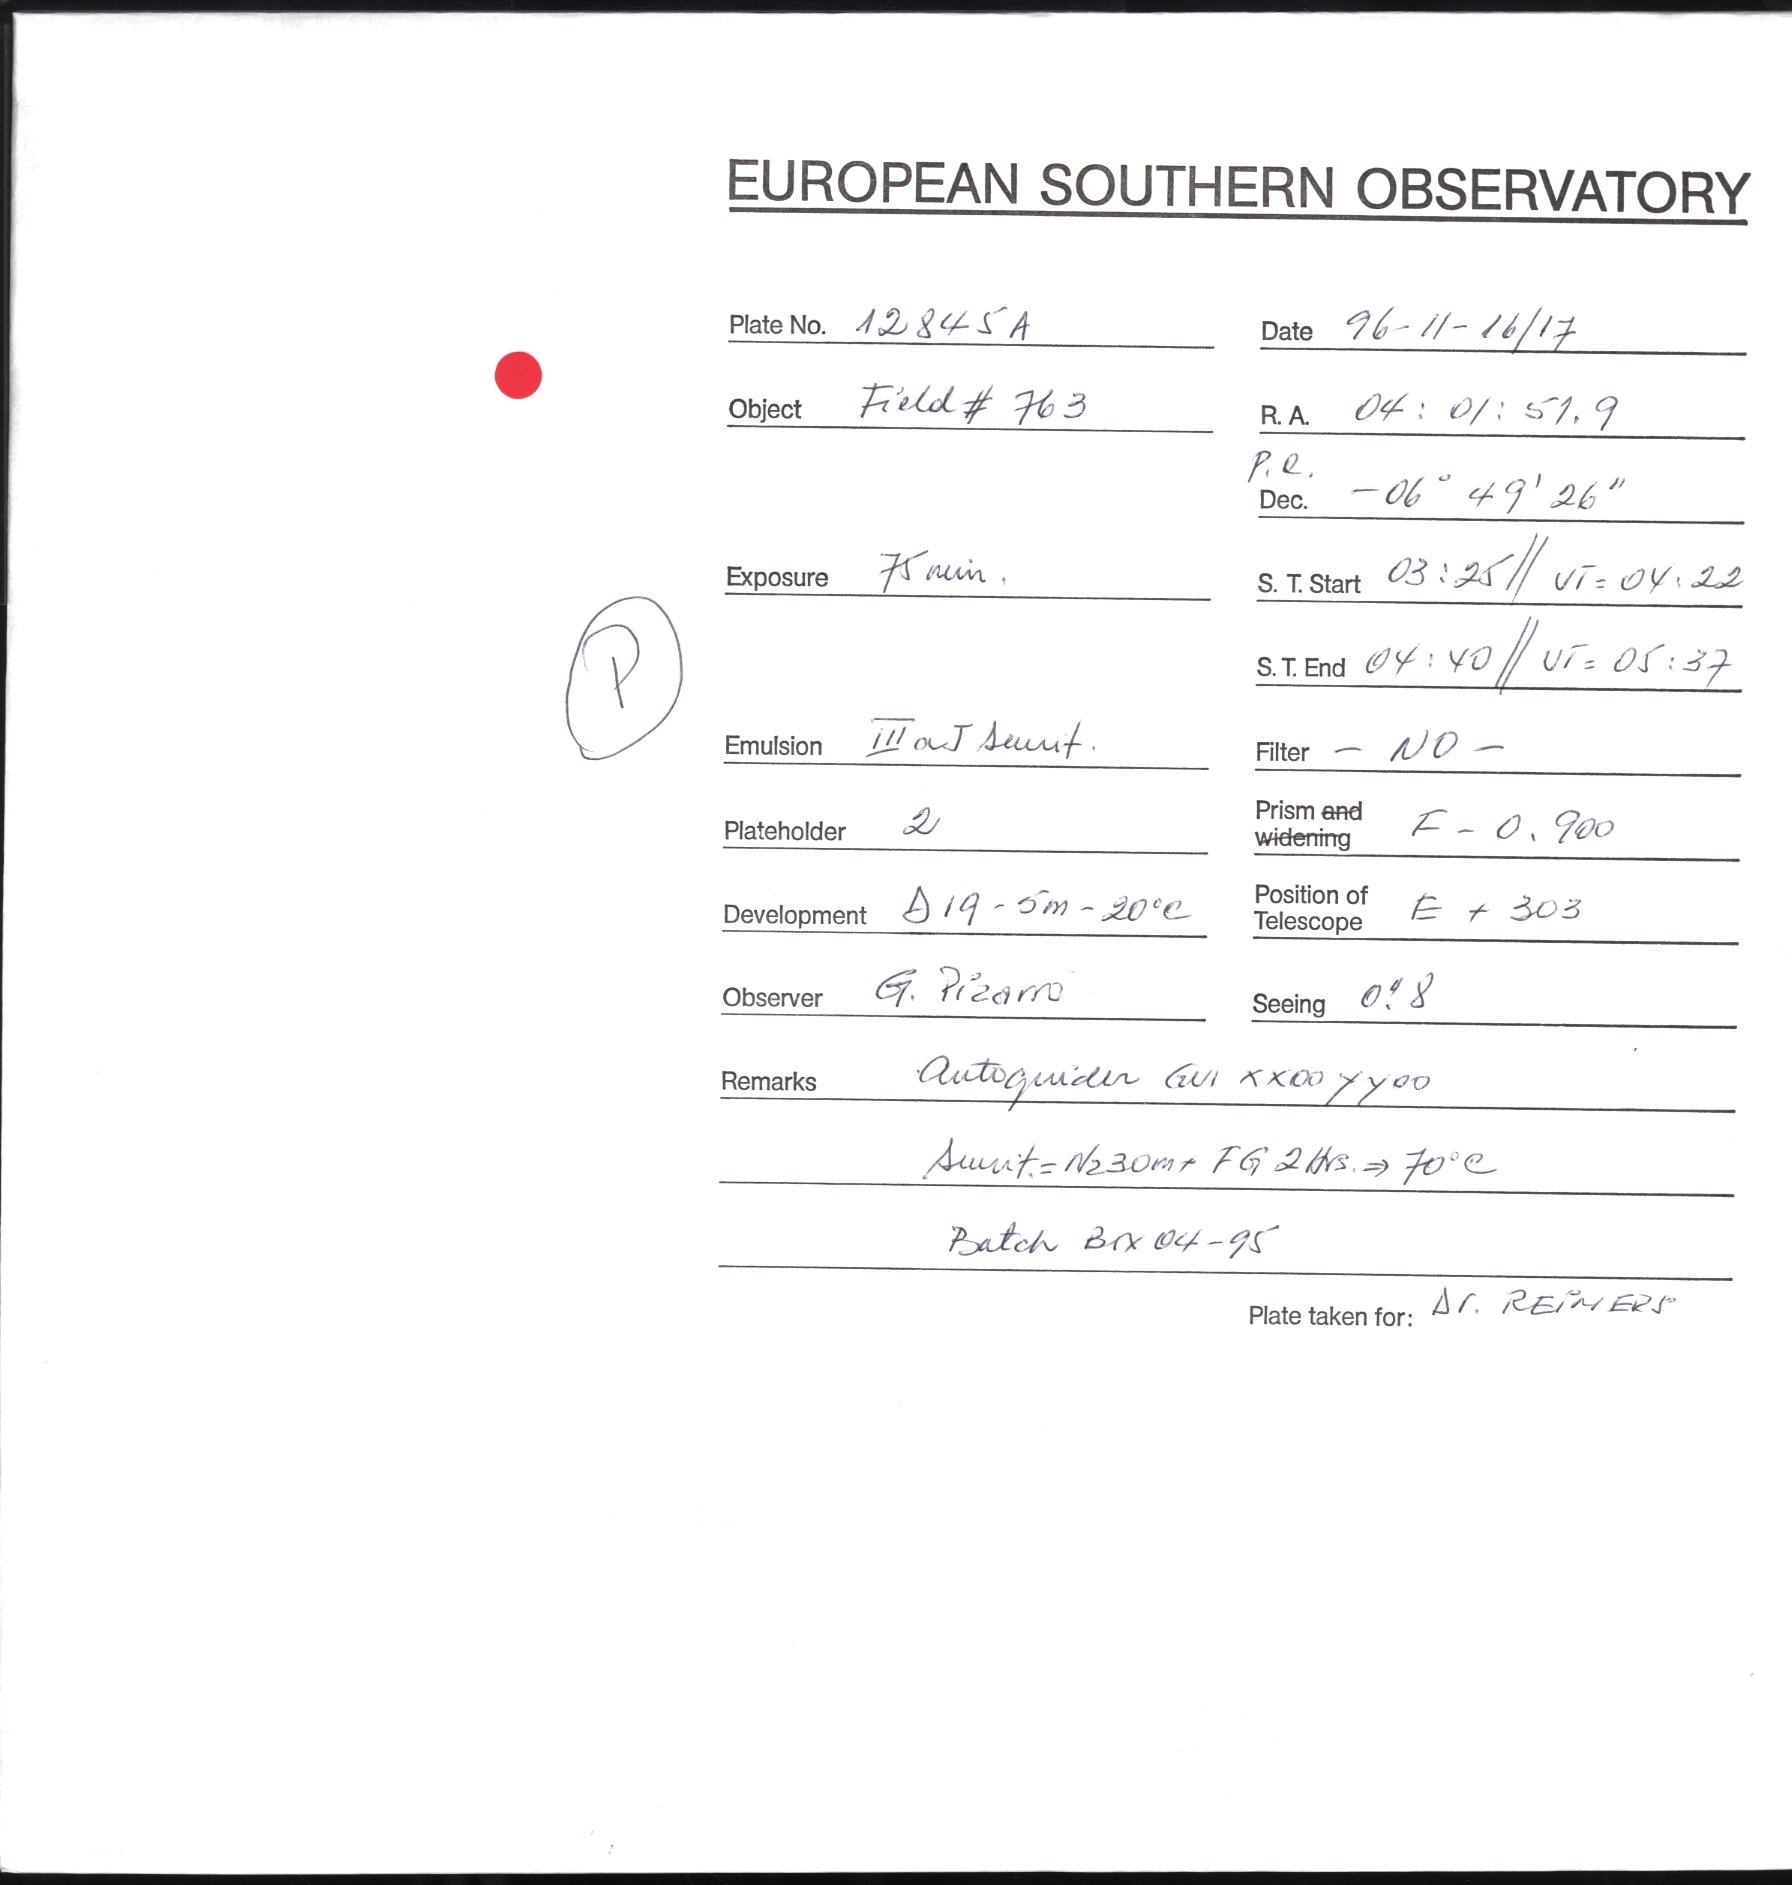 EUROPEAN SOUTHERN OBSERVATORY
Plate No. 12845A Date 96-11-16/17
Object Field # 763 R. A. 04 : 01 : 51.9
P.R.
Dec. -06° 49' 26"
Exposure 75 min. S. T. Start 03:25 // UT = 04:22
S. T. End 04:40 // UT = 05:37
P
Emulsion IIIaJ Sensit. Filter - NO -
Plateholder 2 Prism and widening F - 0.900
Development D19 - 5m - 20°C Position of Telescope E + 303
Observer G. Pizarro Seeing 0".8
Remarks Autoguider XX00 YY00
Sensit. = N2 30m + FG 2 Hrs. ⇒ 70°C
Batch Box 04-95
Plate taken for: Dr. REIMERS